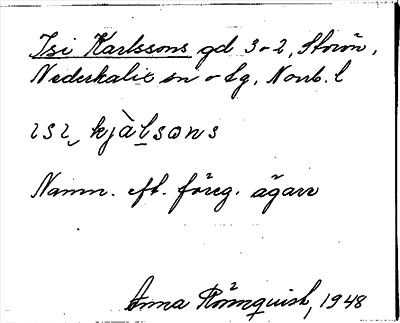 Isi Karlssons gd 3-2, Storön,
Nederkalix sn o lg, Norrb. l
ɪsɪ kjàlsɷns
Namn. eft. föreg. ägare
Anna Rönnquist, 1948